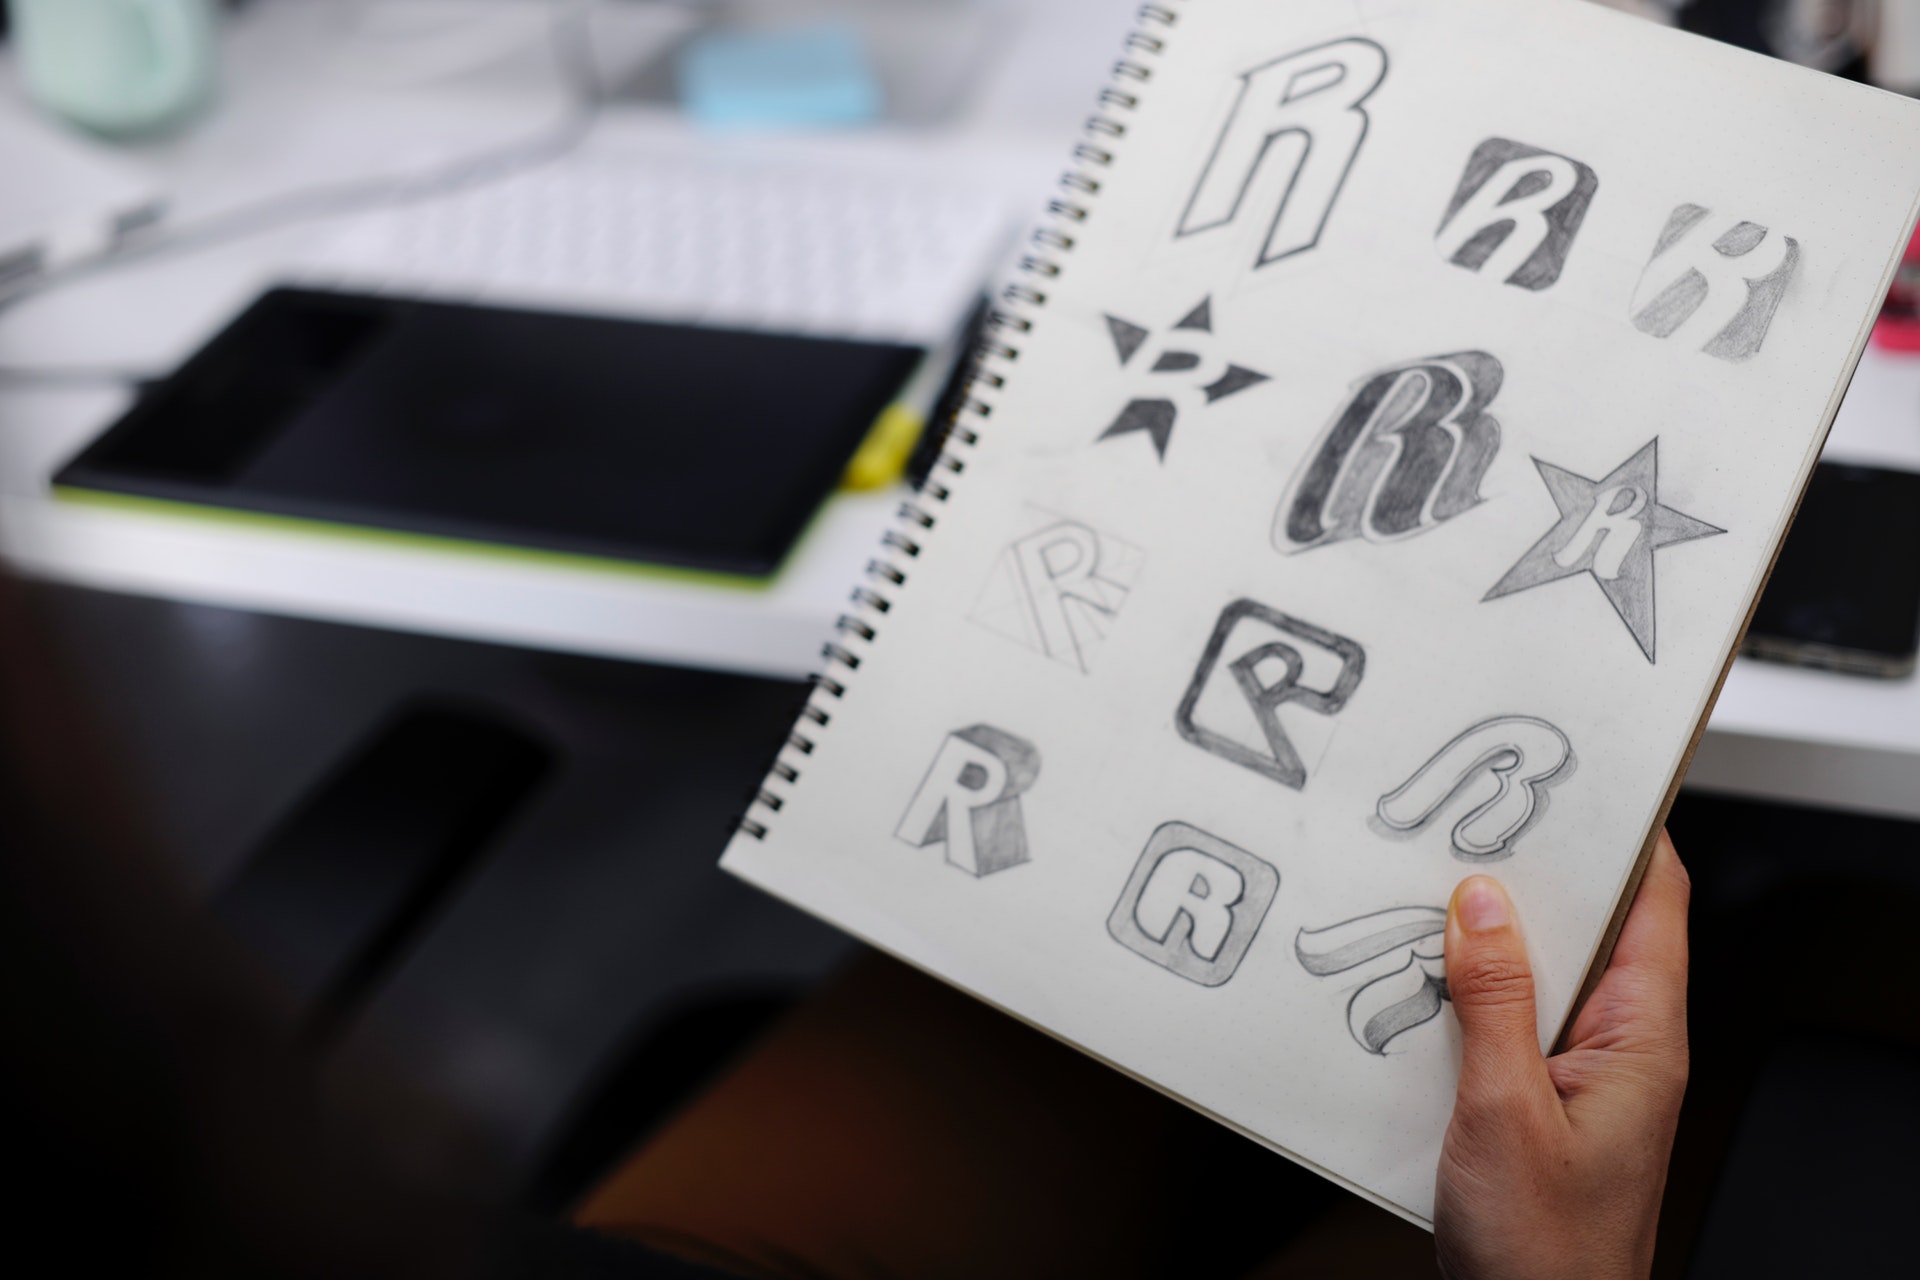 R
R
R
R
R
R
R
R
R
R
R
R